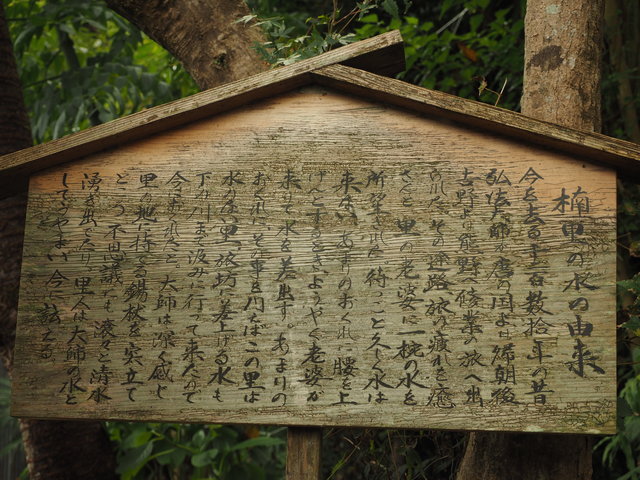 楠里の水の由来
今を去る千百数拾年の昔
弘法大師が唐の国より帰朝後
吉野より熊野修業の旅へ出
られた その途路旅の疲れを癒
さんと 里の老婆に一椀の水を
所望された 待つこと久しく水は
来ない あまりのおくれに腰を上
げんとするとき ようやく老婆が
来りて水を差出す。あまりの
おくれに その事を問えばこの里は
水のない里 旅坊に差上げる水も
下の川まで汲みに行って来たので
今になったと 大師は深く感じ
里の地に持てる錫杖を突立て
と 不思議にも滾々と清水
湧き出でたり 里人は大師の水と
して 今に 伝える